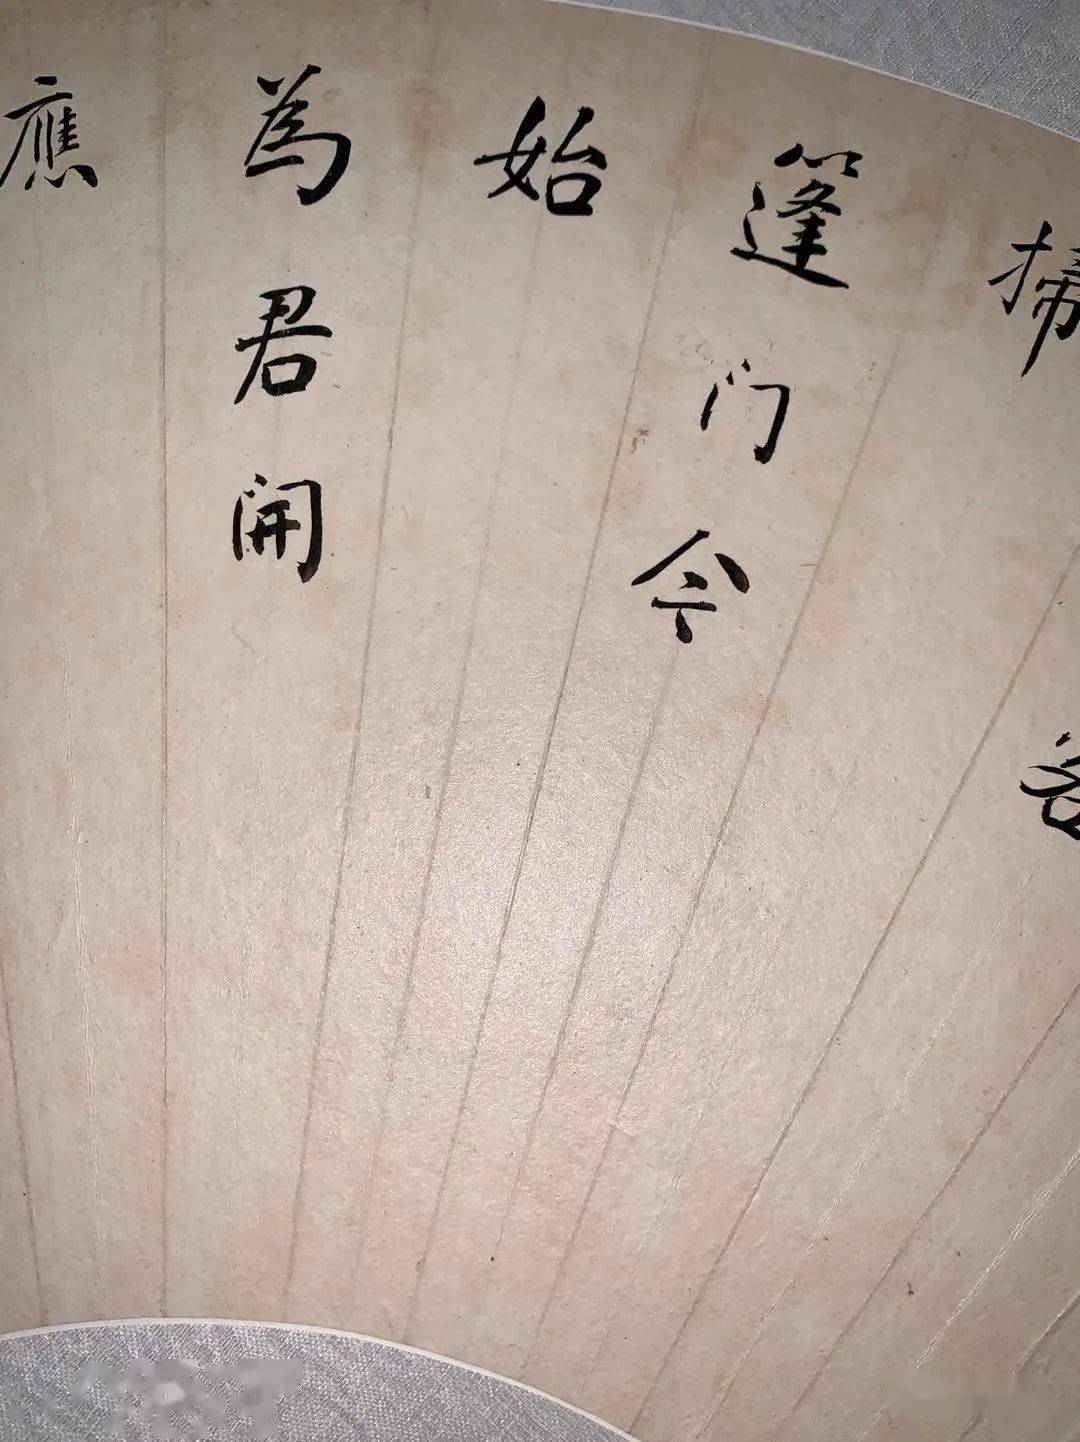 客
掃
篷门今
始
為君開
應